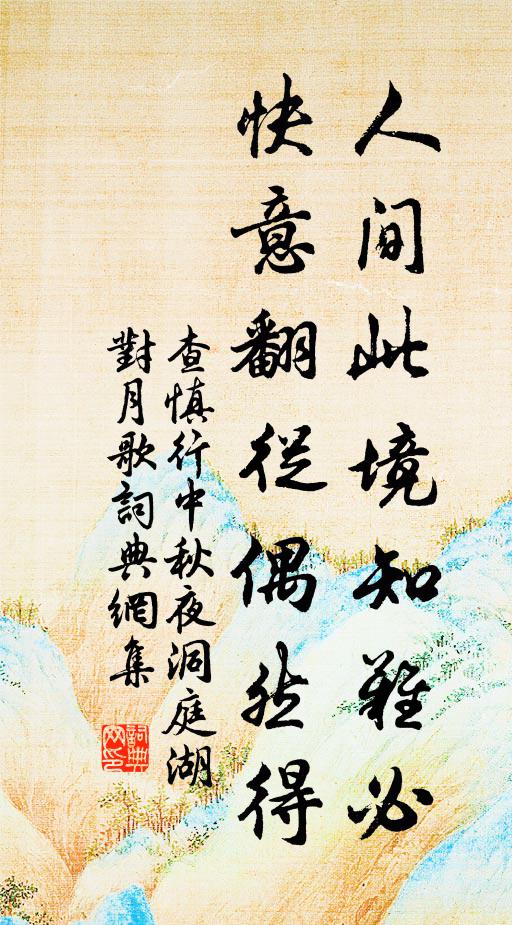 人間此境知難必
快意翻從偶然得
查慎行中秋夜洞庭湖
對月歌詞典網集
詞典
网印